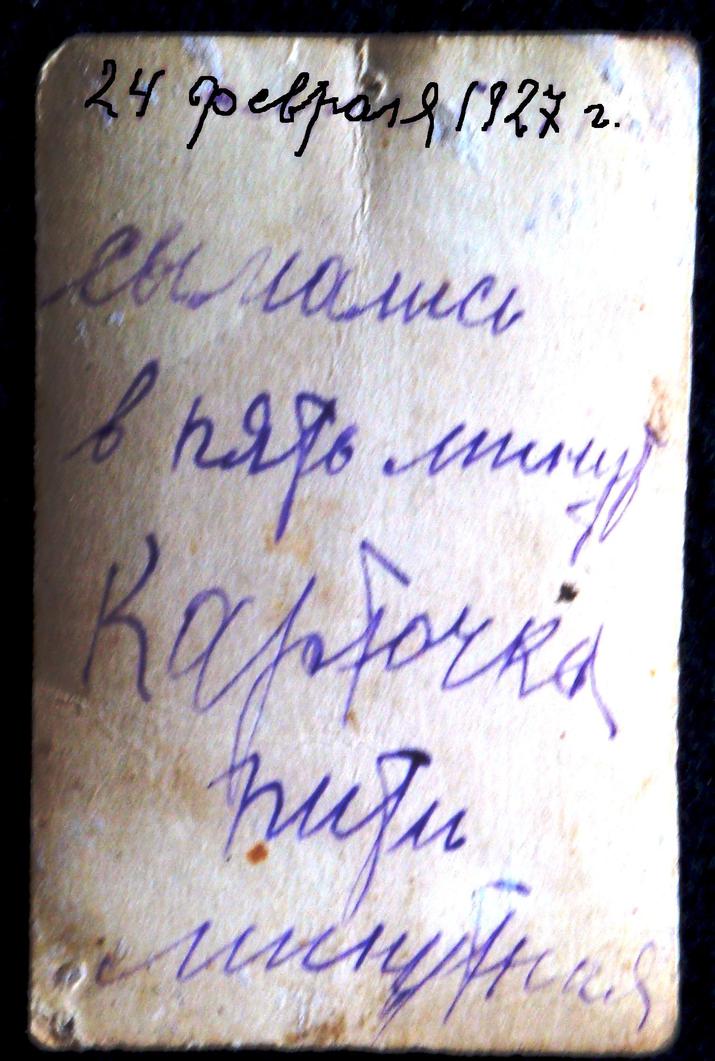 24 февраля 1927 г.
сымались
в пять минут
Карточка
пити
минутная